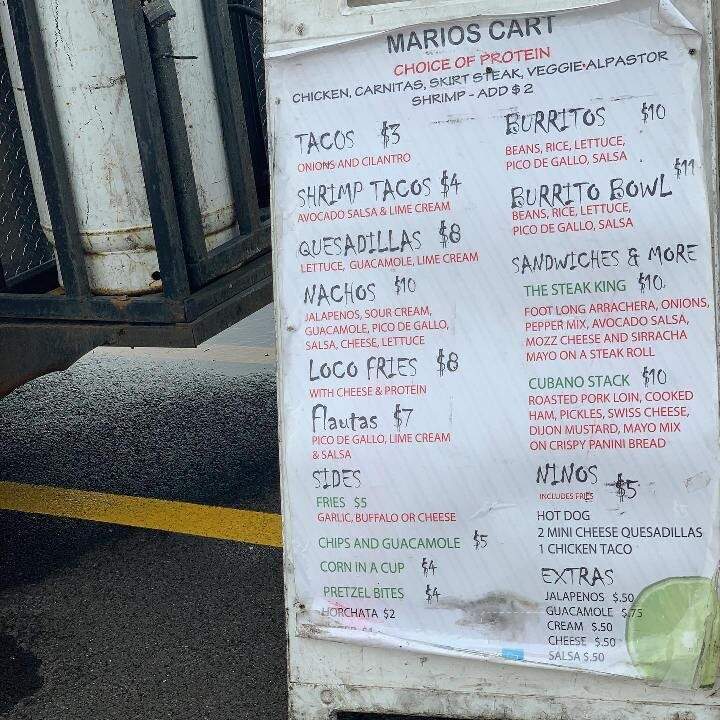 MARIOS CART
CHOICE OF PROTEIN
CHICKEN, CARNITAS, SKIRT STEAK, VEGGIE ALPASTOR
SHRIMP - ADD $2
TACOS $3
ONIONS AND CILANTRO
SHRIMP TACOS $4
AVOCADO SALSA & LIME CREAM
QUESADILLAS $8
LETTUCE, GUACAMOLE, LIME CREAM
NACHOS $10
JALAPENOS, SOUR CREAM,
GUACAMOLE, PICO DE GALLO,
SALSA, CHEESE, LETTUCE
LOCO FRIES $8
WITH CHEESE & PROTEIN
Flautas $7
PICO DE GALLO, LIME CREAM
& SALSA
SIDES
FRIES $5
GARLIC, BUFFALO OR CHEESE
CHIPS AND GUACAMOLE $5
CORN IN A CUP $4
PRETZEL BITES $4
HORCHATA $2
BURRITOS $10
BEANS, RICE, LETTUCE,
PICO DE GALLO, SALSA
BURRITO BOWL $11
BEANS, RICE, LETTUCE,
PICO DE GALLO, SALSA
SANDWICHES & MORE
THE STEAK KING $10
FOOT LONG ARRACHERA, ONIONS,
PEPPER MIX, AVOCADO SALSA,
MOZZ CHEESE AND SIRRACHA
MAYO ON A STEAK ROLL
CUBANO STACK $10
ROASTED PORK LOIN, COOKED
HAM, PICKLES, SWISS CHEESE,
DIJON MUSTARD, MAYO MIX
ON CRISPY PANINI BREAD
NINOS $5
INCLUDES FRIES
HOT DOG
2 MINI CHEESE QUESADILLAS
1 CHICKEN TACO
EXTRAS
JALAPENOS $.50
GUACAMOLE $.75
CREAM $.50
CHEESE $.50
SALSA $.50